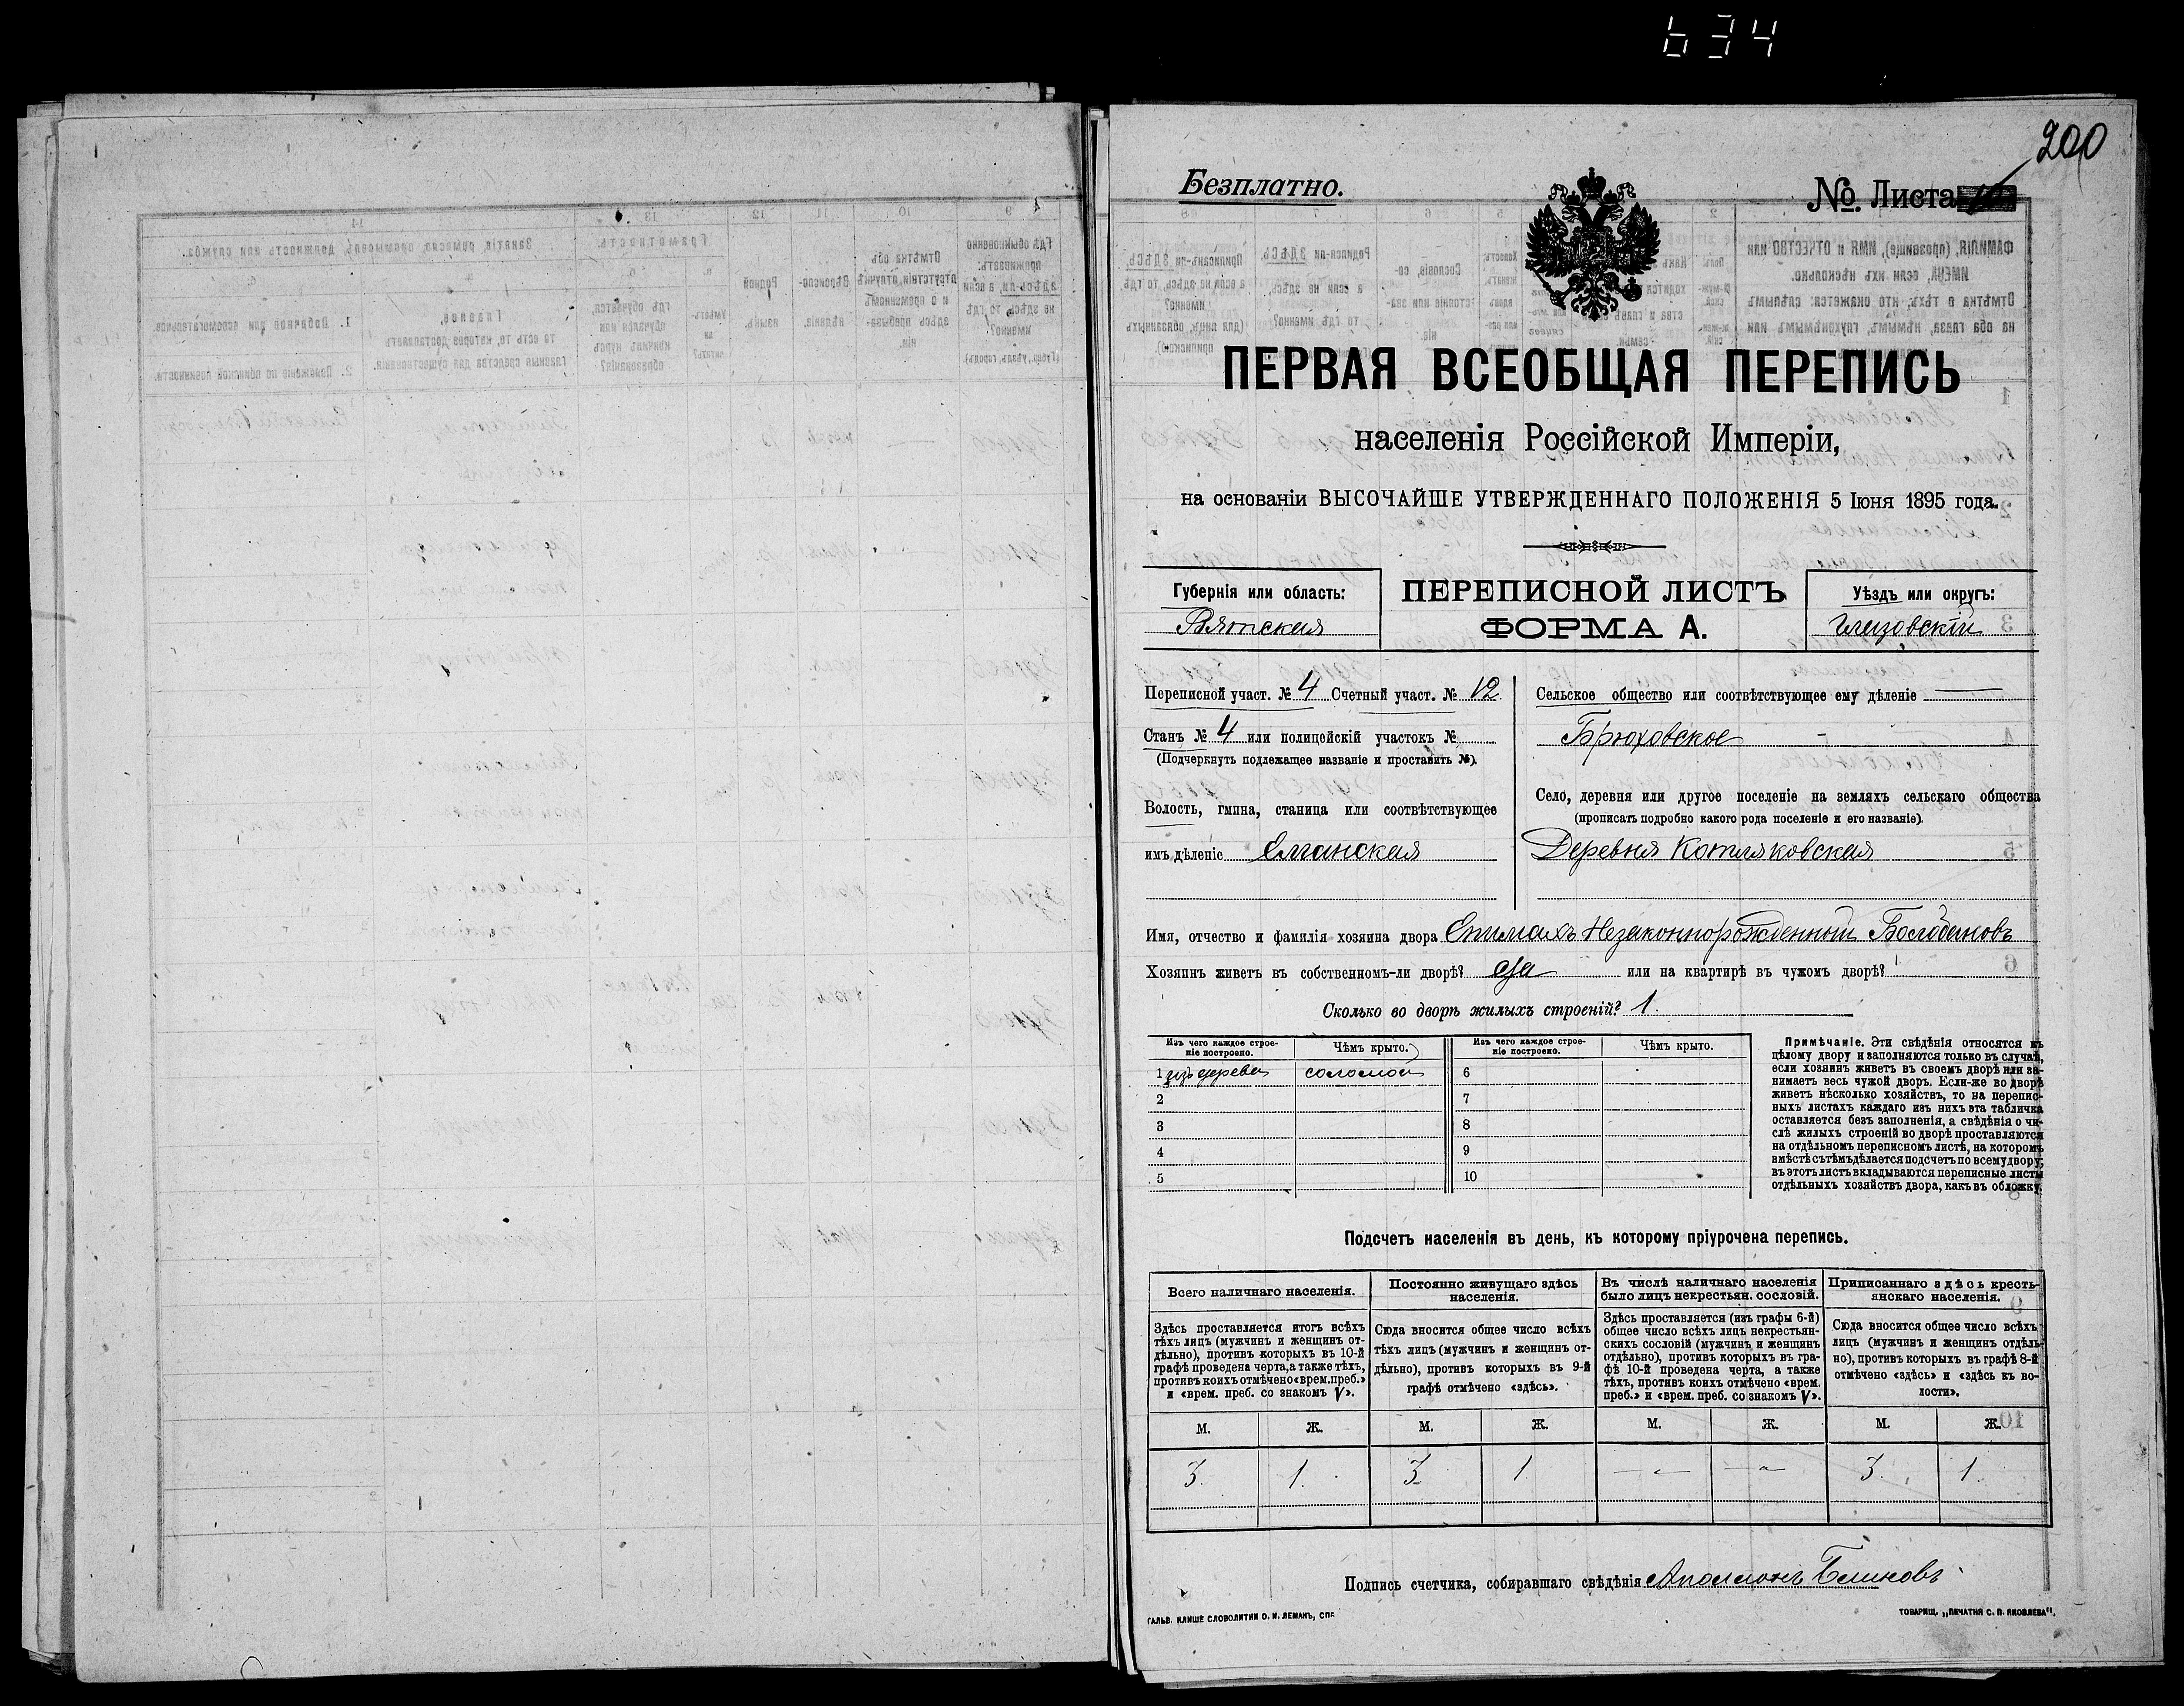 634
200
Безплатно.
№ Листа
ПЕРВАЯ ВСЕОБЩАЯ ПЕРЕПИСЬ
населенія Россійской Имперіи,
на основаніи ВЫСОЧАЙШЕ УТВЕРЖДЕННАГО ПОЛОЖЕНІЯ 5 Іюня 1895 года.
Губернія или область:
Вятская
ПЕРЕПИСНОЙ ЛИСТЪ
ФОРМА А.
Уѣздъ или округъ:
Глазовскій
Переписной участ. № 4 Счетный участ. № 12
Станъ № 4 или полицейскій участокъ №
(Подчеркнуть подлежащее названіе и проставить №).
Волость, гмина, станица или соотвѣтствующее
имъ дѣленіе Елганская
Сельское общество или соотвѣтствующее ему дѣленіе
Брюховское
Село, деревня или другое поселеніе на земляхъ сельскаго общества
(прописать подробно какого рода поселеніе и его названіе).
Деревня Котляковская
Имя, отчество и фамилія хозяина двора Епимахъ Незаконнорожденный
Хозяинъ живетъ въ собственномъ-ли дворѣ? да или на квартирѣ въ чужомъ дворѣ?
Сколько во дворѣ жилыхъ строеній? 1.
Изъ чего каждое строе-
ніе построено.
Чѣмъ крыто.
Изъ чего каждое строе-
ніе построено.
Чѣмъ крыто.
1 изъ дерева соломой
2
3
4
5
6
7
8
9
10
Примѣчаніе. Эти свѣдѣнія относятся къ
цѣлому двору и заполняются только въ случаѣ,
если хозяинъ живетъ въ своемъ дворѣ или за-
нимаетъ весь чужой дворъ. Если-же во дворѣ
живетъ нѣсколько хозяйствъ, то на перепис-
ныхъ листахъ каждаго изъ нихъ эта табличка
оставляется безъ заполненія, а свѣдѣнія о чи-
слѣ жилыхъ строеній во дворѣ проставляются
на отдѣльномъ переписномъ листѣ, на которомъ
вмѣстѣ съ тѣмъ дѣлается подсчетъ по всему двору;
въ этотъ листъ вкладываются переписные листы
отдѣльныхъ хозяйствъ двора, какъ въ обложку.
Подсчетъ населенія въ день, къ которому пріурочена перепись.
Всего наличнаго населенія.
Здѣсь проставляется итогъ всѣхъ
тѣхъ лицъ (мужчинъ и женщинъ от-
дѣльно), противъ которыхъ въ 10-й
графѣ проведена черта, а также тѣхъ,
противъ коихъ отмѣчено «врем. преб.»
и «врем. преб. со знакомъ V».
Постоянно живущаго здѣсь
населенія.
Сюда вносится общее число всѣхъ
тѣхъ лицъ (мужчинъ и женщинъ от-
дѣльно), противъ которыхъ въ 9-й
графѣ отмѣчено «здѣсь».
Въ числѣ наличнаго населенія
было лицъ некрестьян. сословій.
Здѣсь проставляется (изъ графы 6-й)
общее число всѣхъ лицъ некрестьян-
скихъ сословій (мужчинъ и женщинъ
отдѣльно), противъ которыхъ въ гра-
фѣ 10-й проведена черта, а также
тѣхъ, противъ коихъ отмѣчено «врем.
преб.» и «врем. преб. со знакомъ V».
Приписаннаго здѣсь кресть-
янскаго населенія.
Сюда вносится общее число всѣхъ
лицъ (мужчинъ и женщинъ отдѣль-
но), противъ которыхъ въ графѣ 8-й
отмѣчено «здѣсь» и «здѣсь къ во-
лости».
М. Ж. М. Ж. М. Ж. М. Ж.
3. 1. 3. 1 3. 1.
Подпись счетчика, собиравшаго свѣдѣнія Аполлонъ Блиновъ
ГАЛЬВ. КЛИШЕ СЛОВОЛИТНИ О. И. ЛЕМАНЪ, СПБ.
ТОВАРИЩ. „ПЕЧАТНЯ С. П. ЯКОВЛЕВА“.